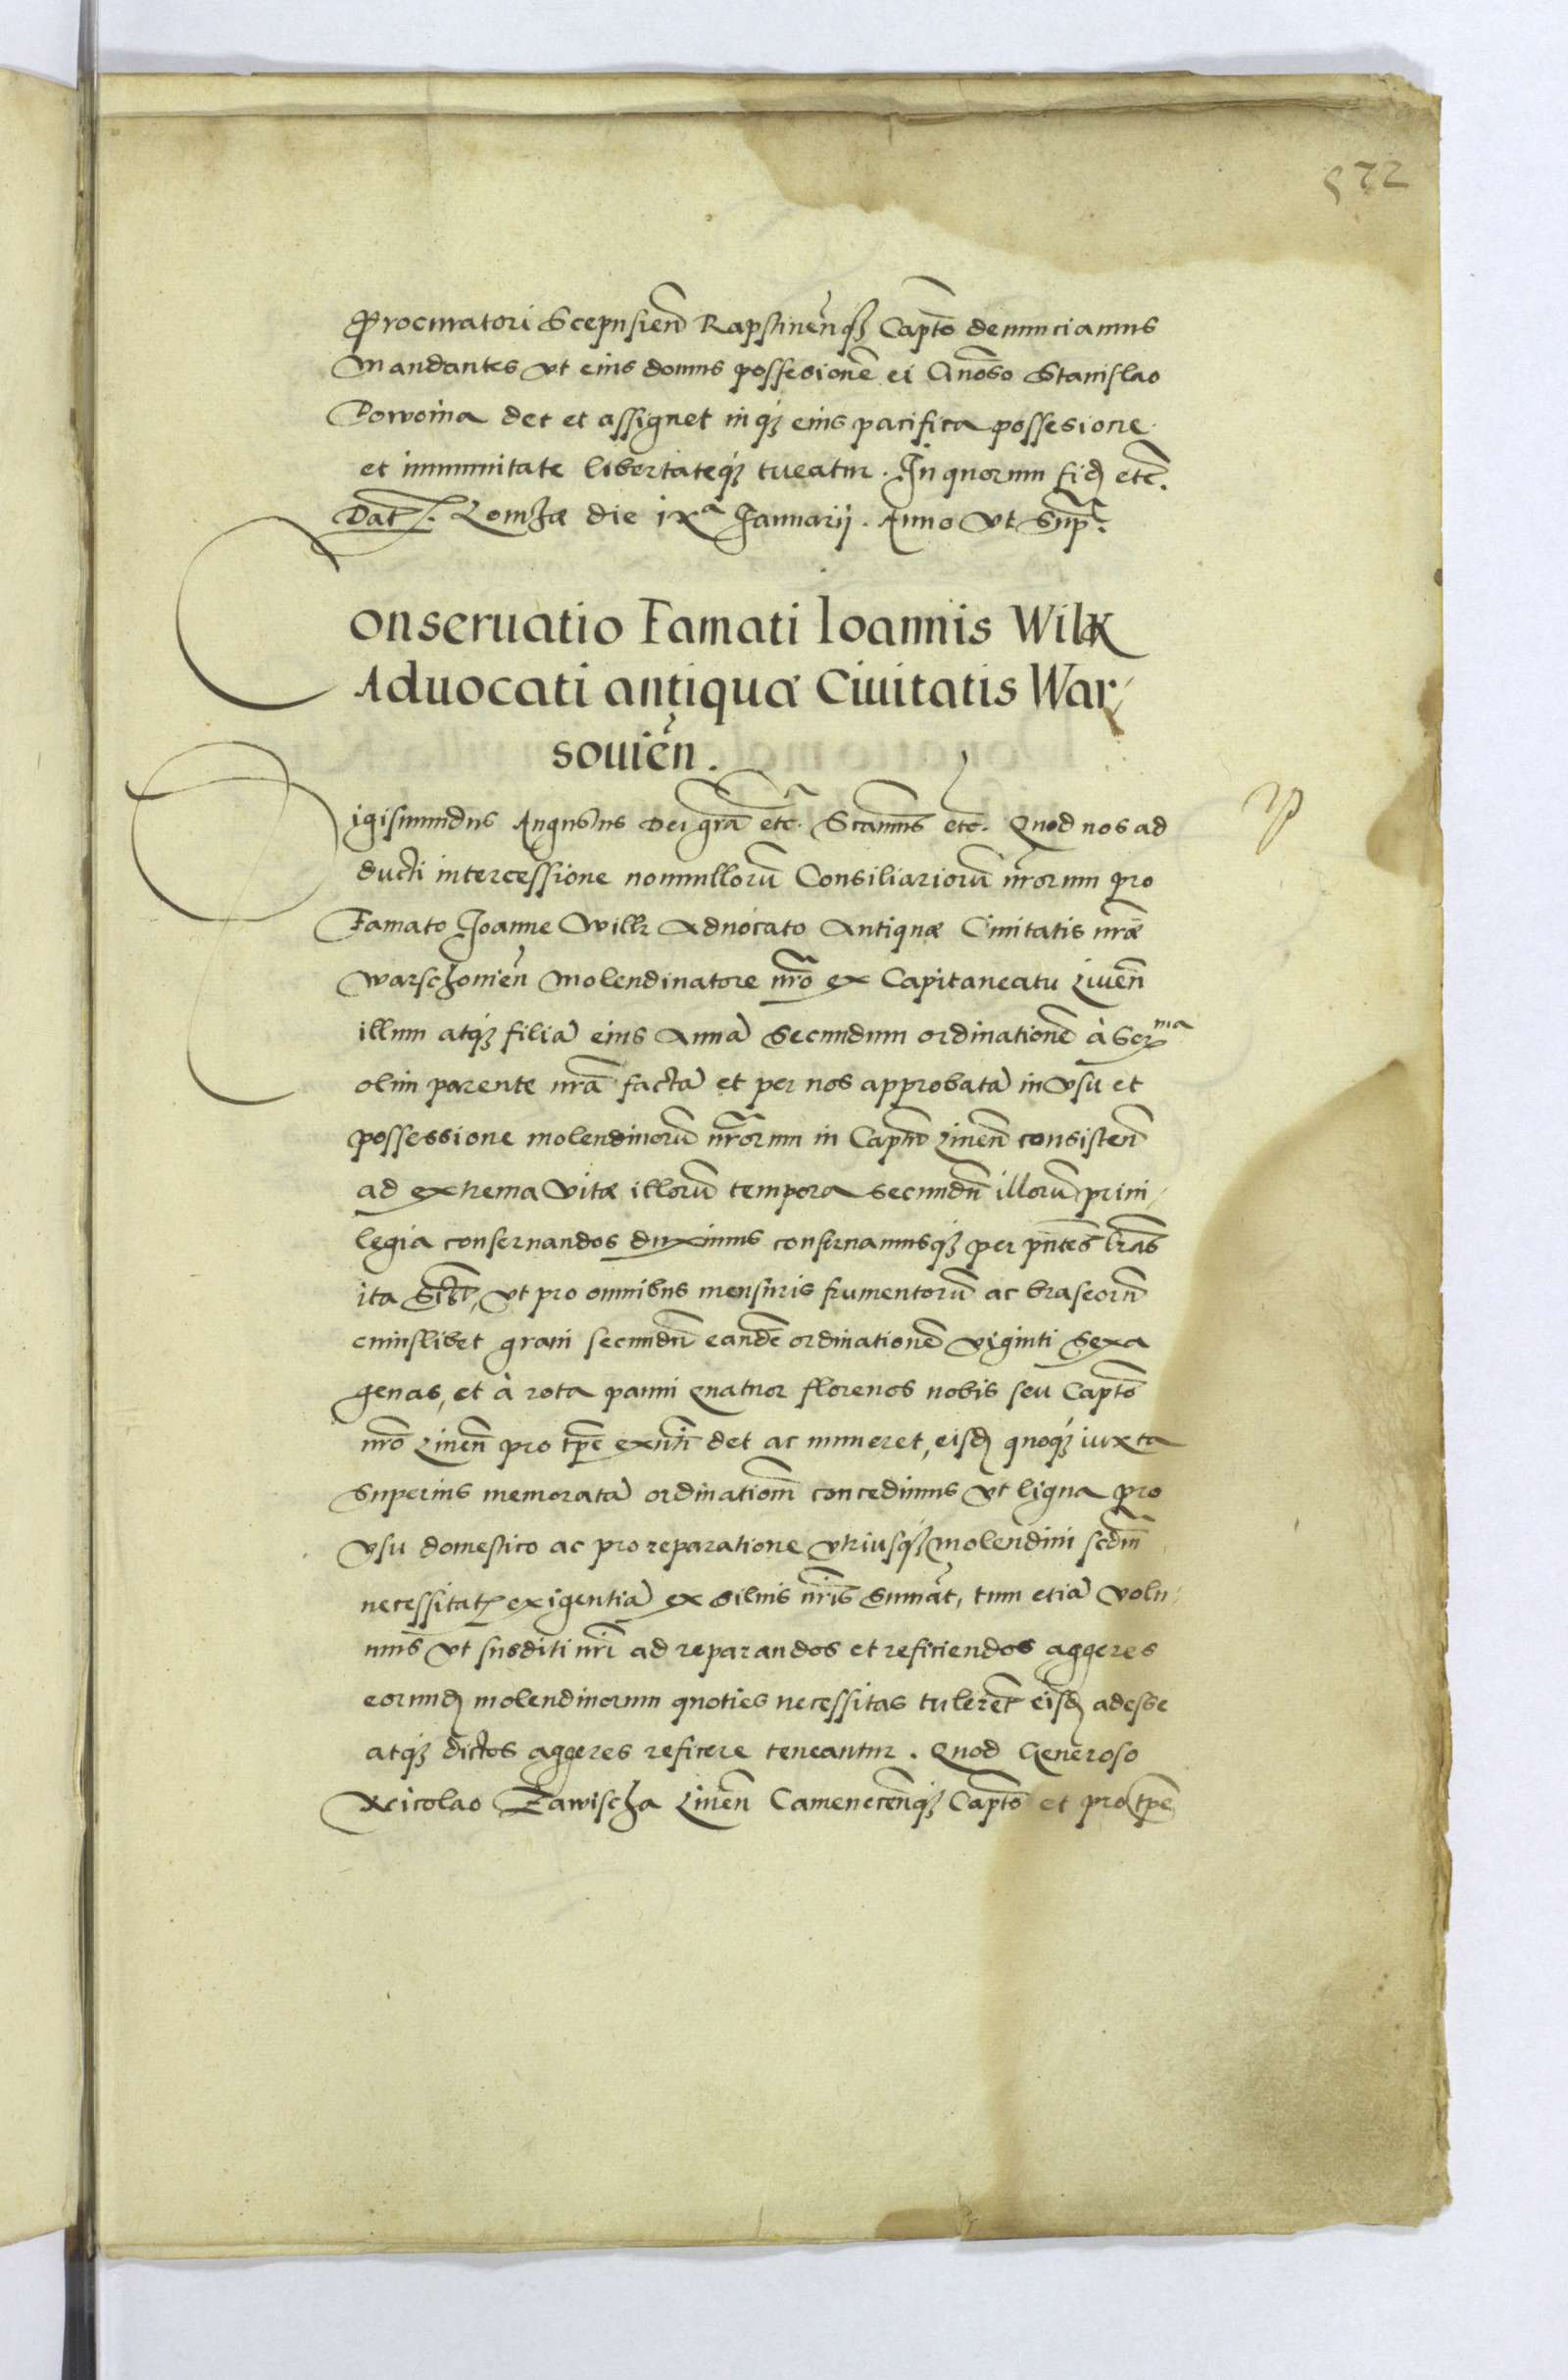 572
Procuratori Scepusien̄ Rapstinen̄q₃ Capt̄o denunciamus
Mandantes vt eius domus possesionē ei Gn̄oso Stanislao
Dowoina det et assignet inq₃ eius pacifica possesione
et immunitate libertateq₃ tueatur. In quorum fid etc̄.
Dat̄. Lomzæ die ixᵃ Januarij. Anno vt Sup̄.
Conseruatio Famati Ioannis Wilk
Aduocati antiquæ Ciuitatis War-
souien̄.
Sigismundus Augustus Dei gr̄a etc̄. S Quod nos ad
ducti intercessione nonnullorū Consiliariorū nr̄orum pro
Famato Joanne Wilk Aduocato Antiquæ Ciuitatis nr̄æ
Warschouien̄ Molendinatore nr̄o ex Capitaneatu Liuen̄
illum atq₃ filiā eius Annā Secundum ordinationē à Serᵐᵃ
olim parente nr̄a factā et per nos approbatā in vsu et
possessione molendinorū nr̄orum in Capn̄tu Liuen̄ consisten̄
ad extrema vitæ illorū tempora secundū illorū priui-
legia conseruandos duximus conseruamusq₃ per pn̄tes lr̄as
ita vt pro omnibus mensuris frumentorū ac braseorū
cuiuslibet grani secundū eandē ordinationē viginti Sexa
genas, et à rota panni Quatuor florenos nobis seu Capt̄o
nr̄o Liuen̄ pro tp̄e exn̄ti det ac numeret, eisd quoq₃ iuxta
Superius memoratā ordinationē concedimus vt ligna pro
vsu domestico ac pro reparatione vtriusq₃ molendini scd̄m
necessitat exigentiā ex siluis nr̄is Sumāt, tum etiā volu-
mus vt subditi nr̄i ad reparandos et reficiendos aggeres
eorund molendinorum quoties necessitas tulerēt eisd adesse
atq₃ dictos aggeres reficere teneantur. Quod Generoso
Nicolao Zawischa Liuen̄ Camenecen̄q₃ Capt̄o et pro tp̄e